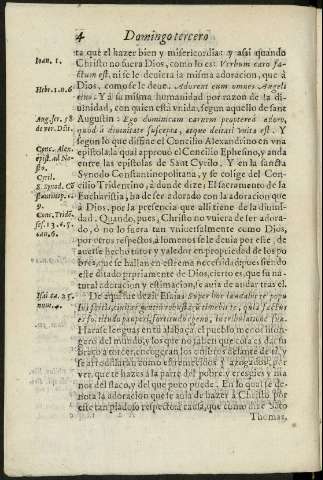 4 Domingo tercero
ta que el hazer bien y misericordia: y assi quando
Ioan. 1.
Christo no fuera Dios, como lo es: Verbum caro fa-
ctum est, ni se le deuiera la misma adoracion, que à
Hebr. 1. n. 6
Dios, como se le deue. Adorent eum omnes Angeli
eius: Y a su misma humanidad por razon de la di-
uinidad, con quien esta vnida, segun aquello de sant
Aug. ser. 58
Augustin: Ego dominicam carnem propterea adoro,
de ver. Dñi.
quod à diuinitate suscepta, atque deitati vnita est. Y
segun lo que difine el Concilio Alexandrino en vna
Conc. Alex.
epistola, la qual aprouò el Concilio Ephesino, y anda
epist. ad Nes
entre las epistolas de Sant Cyrilo. Y en la sancta
Cyril.
Synodo Constantinopolitana, y se colige del Con-
5. Synod. Co
cilio Tridentino, à donde dize: El Sacramento de la
Eucharistia, ha de ser adorado con la adoracion que
9.
à Dios, por la presencia que alli tiene de la diuini-
Conc. Tride.
dad. Quando, pues, Christo no vuiera de ser adora-
ses. 13. c. 5.
do, ò no lo fuera tan vniuersalmente como Dios,
can. 6.
por otros respectos, à lo menos se le deuia por esse, de
auerse hecho tutor y valedor en propriedad de los po
bres, que se hallan en estrema necesidad: pues siendo
este ditado propriamente de Dios, cierto es, que su na-
tural adoracion y estimacion, se auia de andar tras el.
Isai. ca. 25.
De aqui fue dezir Esaias: Super hoc laudabit te popu
num. 4.
lus fortis, ciuitas gentium robustarum timebit te, quia factus
es fortitudo pauperi, fortitudo egeno, in tribulatione sua.
Haranse lenguas en tu alabança el pueblo
gero del mundo, y los que no saben que cosa es dar su
braço a torcer, encogeran los ombros delante de ti, y
se arrodillaran como
ver, que te hazes à la parte del pobre, y eres
nor del flaco, y del que poco puede. En lo qual se de-
nota la adoracion que se auia de hazer à Christo por
este tan piadoso respecto: à causa, que como dize Sãto
Thomas,